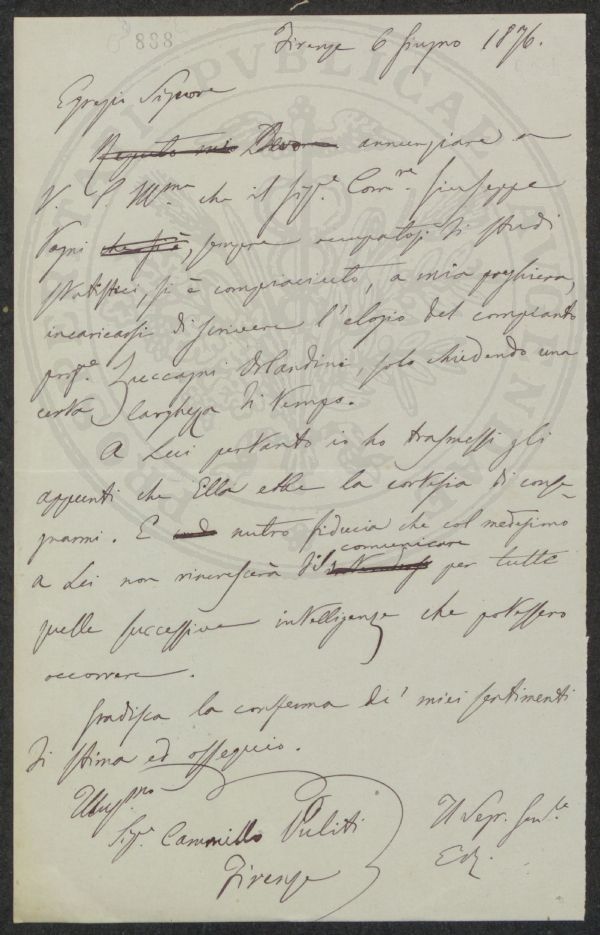 838
Firenze 6 Giugno 1876.
Egregio Signore
Reputo mio Devo annunziare a
V. S. Ill.ma che il Sig.e Com.re Giuseppe
Vegni che si è, sempre occupatosi di studi
statistici, si è compiaciuto, a mia preghiera,
incaricarsi di scrivere l'elogio del compianto
prof.e Zuccagni Orlandini, solo chiedendo una
certa larghezza di tempo.
A Lui pertanto io ho trasmessi gli
appunti che Ella ebbe la cortesia di conse-
gnarmi. E nutro fiducia che col medesimo
a Lei non rincrescerà di comunicare per tutte
quelle successive intelligenze che potessero
occorrere.
Gradisca la conferma de' miei sentimenti
di stima ed ossequio.
Illus.mo
Sig.e Cammillo Puliti
Firenze
Il Segr. Gen.le